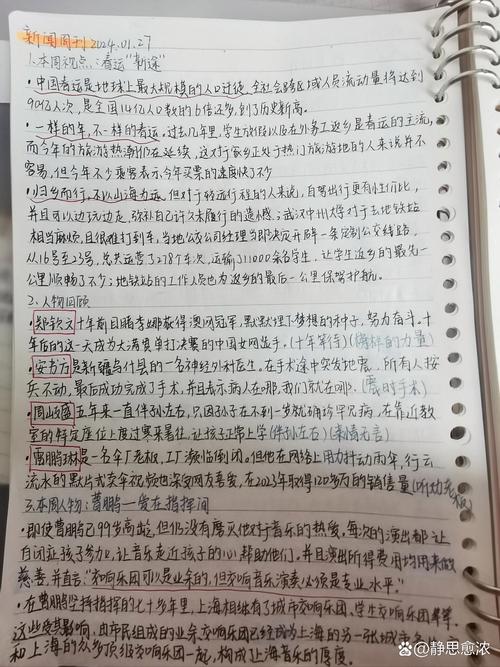 新闻周刊 2024.01.27
1.本周视点：春运“新途”
·中国春运是地球上最大规模的人口迁徙,全社会跨区域人员流动量将达到
90亿人次,是全国14亿人口数的6倍还多,到了历史新高。
·一样的年,不一样的春运。过去几年里,学生放假以及在外务工返乡是春运的主流,
而今年的旅游热潮仍在延续,这对家乡正处于热门旅游地的人来说并不
容易,但今年不少乘客表示今年买票的速度快了不少
·归乡而行,不以山海为远。但对于较远行程的人来说,自驾出行更有性价比,
并且可以边玩边走,弥补自己许久未履行的遗憾;武汉中州大学对于去地铁站
相当麻烦,且很难打到车,当地公交公司经理当即决定开辟一条定制公交线路,
从16号至23号,总共运营了278个车次,运输了11000余名学生,让学生返乡的最先一
公里顺畅了不少;地铁站的工作人员也为返乡的最后一公里保驾护航。
2.人物回顾
·郑钦文十年前目睹李娜获得澳网冠军,默默埋下梦想的种子,努力奋斗。十
年后的这一天成为大满贯单打决赛的中国女网选手。(十年等待)(榜样的力量)
·安书方是新疆乌什县的一名神经外科医生。在手术途中突发地震,所有人按
兵不动,最后成功完成了手术,并且表示病人在哪,我们就在哪。(震时手术)
·周 五年来一直伴孙左右,只因孙子在不到一岁就确诊罕见病,在靠近教
室的特定座位上度过寒来暑往,让孩子正常上学(伴孙左右)(亲情无言)
·曹鹏琳是一名伞厂老板,工厂濒临倒闭。但他在网络上用力抖动雨伞,行云
流水的黑衣 卖伞视频也深受网友喜爱,在2023年取得120多万的销售量(听劝老板)
3.本周人物:曹鹏—爱在指挥间
·即使曹鹏已99岁高龄,但仍没有磨灭他对音乐的热爱。每次的演出都让
自闭症孩子参加,让音乐走近孩子的心帮助他们,并且演出所得费用均用来做
慈善,并直言:“交响乐团可以是业余的,但交响音乐演奏必须是专业水平。”
·在曹鹏坚持指挥的七十多年里,上海相继有了城市交响乐团、学生交响乐团等等。
这些受其影响,由市民组成的业余交响乐团已经成为上海的另一张城市名片
和上海的众多顶级交响乐团一起,构成了上海音乐的厚度。
@静思愈浓